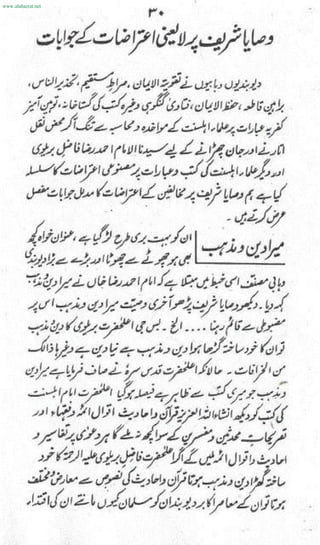 www.alahazrat.net
۳۰
وصایا شریف پر لایعنی اعتراضات کے جوابات
دیوبندیوں وہابیوں نے تقویۃ الایمان، صراط مستقیم، تحذیر الناس،
براہین قاطعہ، حفظ الایمان، فتاویٰ گنگوہی وغیرہ کتب کی گستاخانہ، توہین آمیز
کفریہ عبارات پر علماء اہلسنت کے مواخذہ و محاسبہ سے تنگ آکر محض نقل
اتارنے اور جان چھڑانے کے لیے سیدنا الامام احمد رضا فاضل بریلوی
اور دیگر علماء اہلسنت کی کتب و عبارات پر مصنوعی اعتراضات کا سلسلہ
کیا ہے ہم وصایا شریف پر مخالفین کے اعتراضات کا مدلل جوابات مفصل
عرض کرتے ہیں۔
میرا دین و مذہب
ان کو بہت بری طرح لڑ گیا ہے، عنوان خواہ کچھ
بھی ہو چھوٹے سے چھوٹا اور بڑے سے بڑا دیوبندی
وہابی مصنف اسی خبط میں مبتلا ہے کہ امام احمد رضا خاں نے میرا دین و مذہب
کہہ دیا۔ دیکھو وصایا شریف پڑھو آخری وصیت میرا دین و مذہب اس پر
مضبوطی سے قائم رہنا .... الخ۔ بس جی اعلحضرت بریلوی کا دین مذہب
تو ان کا خود ساختہ گڑھا ہوا دین و مذہب ہے نیا دین ہے وغیرہا ذالک
من الخرافات۔ حالانکہ اعلحضرت قدس سرہٗ نے صاف فرمایا ہے میرا دین
مذہب جو میری کتب سے ظاہر ہے فیصلہ ہو گیا اعلحضرت امام اہلسنت
کی کتب کو دیکھو انشاء اللہ العزیز قرآن و احادیث اقوال ائمہ و فقہاء اور
تصریحات محدثین و مفسرین کے سوا کچھ نہ ملے گا ہر دعویٰ پر تفاسیر و
احادیث و اقوال ائمہ ملیں گے اگر اعلحضرت فاضل بریلوی علیہ الرحمۃ کا خود
ساختہ گھڑا دین و مذہب ہوتا قرآن و احادیث کی نصوص سے معارض و مختلف
ہوتا تو ان کے معاصر اکابر دیوبند ان کو مسلمان کیوں مانتے ان کی اقتداء